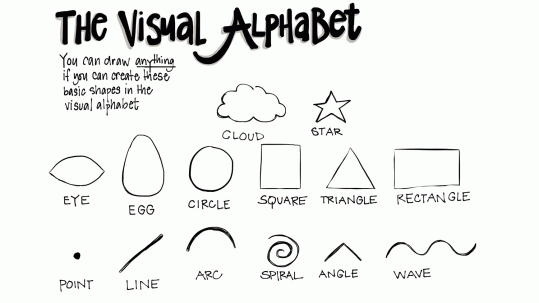 The Visual Alphabet
You can draw anything
if you can create these
basic shapes in the
visual alphabet
CLOUD
STAR
EYE
EGG
CIRCLE
SQUARE
TRIANGLE
RECTANGLE
POINT
LINE
ARC
SPIRAL
ANGLE
WAVE